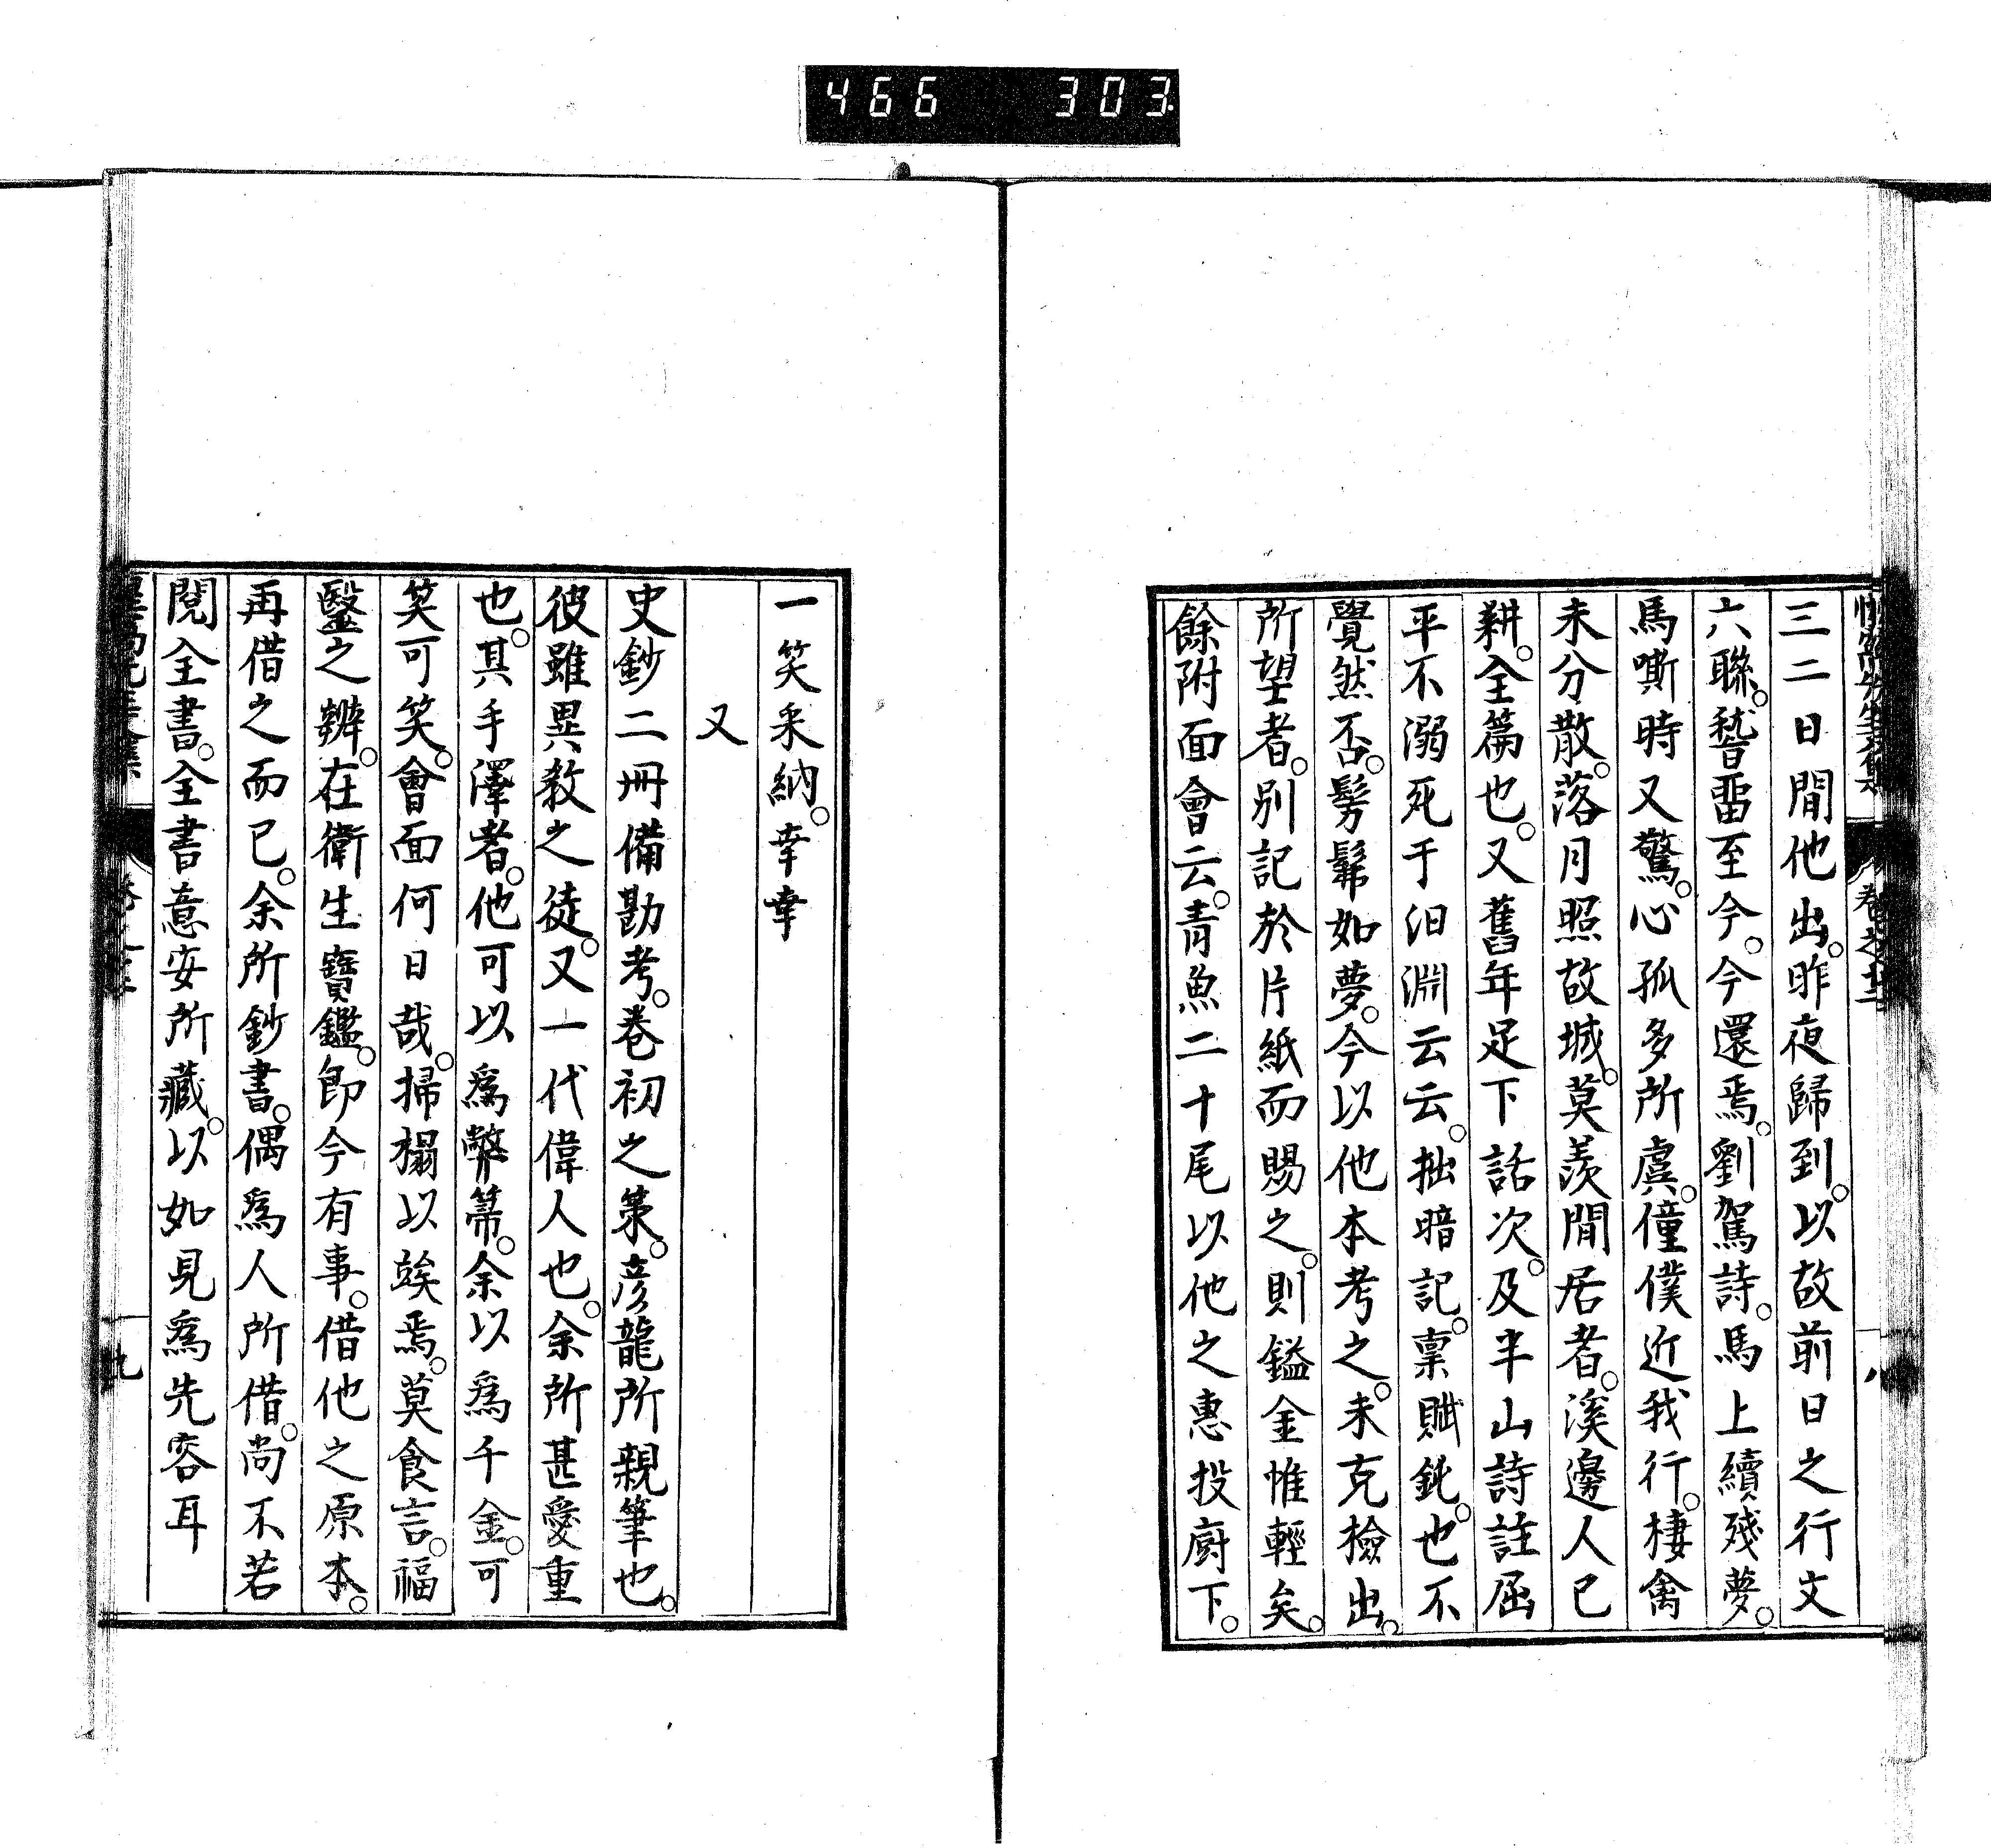 466 303
惺窩先生文集 卷之十二 八
三二日間他出。昨夜歸到。以故前日之行文
六聯。嵆畱至今。今還焉。劉駕詩。馬上續殘夢。
馬嘶時又驚。心孤多所虞。僮僕近我行。棲禽
未分散。落月照故城。莫羨閒居者。溪邊人已
耕。全篇也。又舊年足下話次。及半山詩註屈
平不溺死于汨淵云云。拙暗記。稟賦鈍。也不
覺然否。髣髴如夢。今以他本考之。未克檢出。
所望者。別記於片紙而賜之。則鎰金惟輕矣。
餘附面會云。青魚二十尾以他之惠投廚下。
一笑采納。幸幸
又
史鈔二冊備勘考。卷初之箓。彦龍所親筆也。
彼雖異教之徒。又一代偉人也。余所甚愛重
也。其手澤者。他可以爲弊箒。余以爲千金。可
笑可笑。會面何日哉。掃榻以竢焉。莫食言。福
毉之辨。在衛生寶鑑。卽今有事。借他之原本。
再借之而已。余所鈔書。偶爲人所借。尚不若
閱全書。全書意安所藏。以如見爲先容耳
九